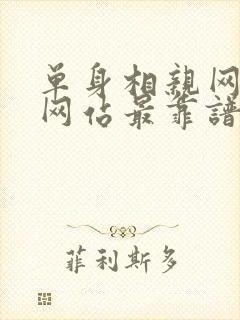 单身相親网
网佔最靠譜
菲利斯多